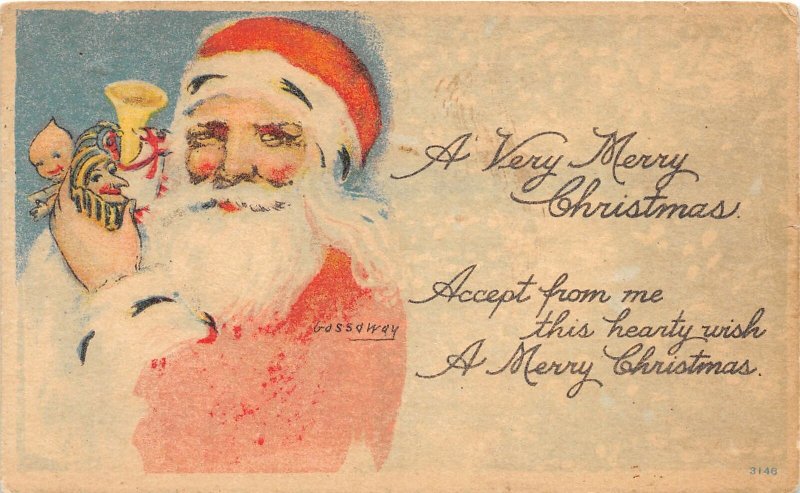 A Very Merry
Christmas.
Accept from me
this hearty wish
A Merry Christmas.
Gassaway
3146